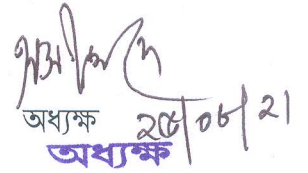 অধ্যক্ষ
২৫/০৮/২১
অধ্যক্ষ